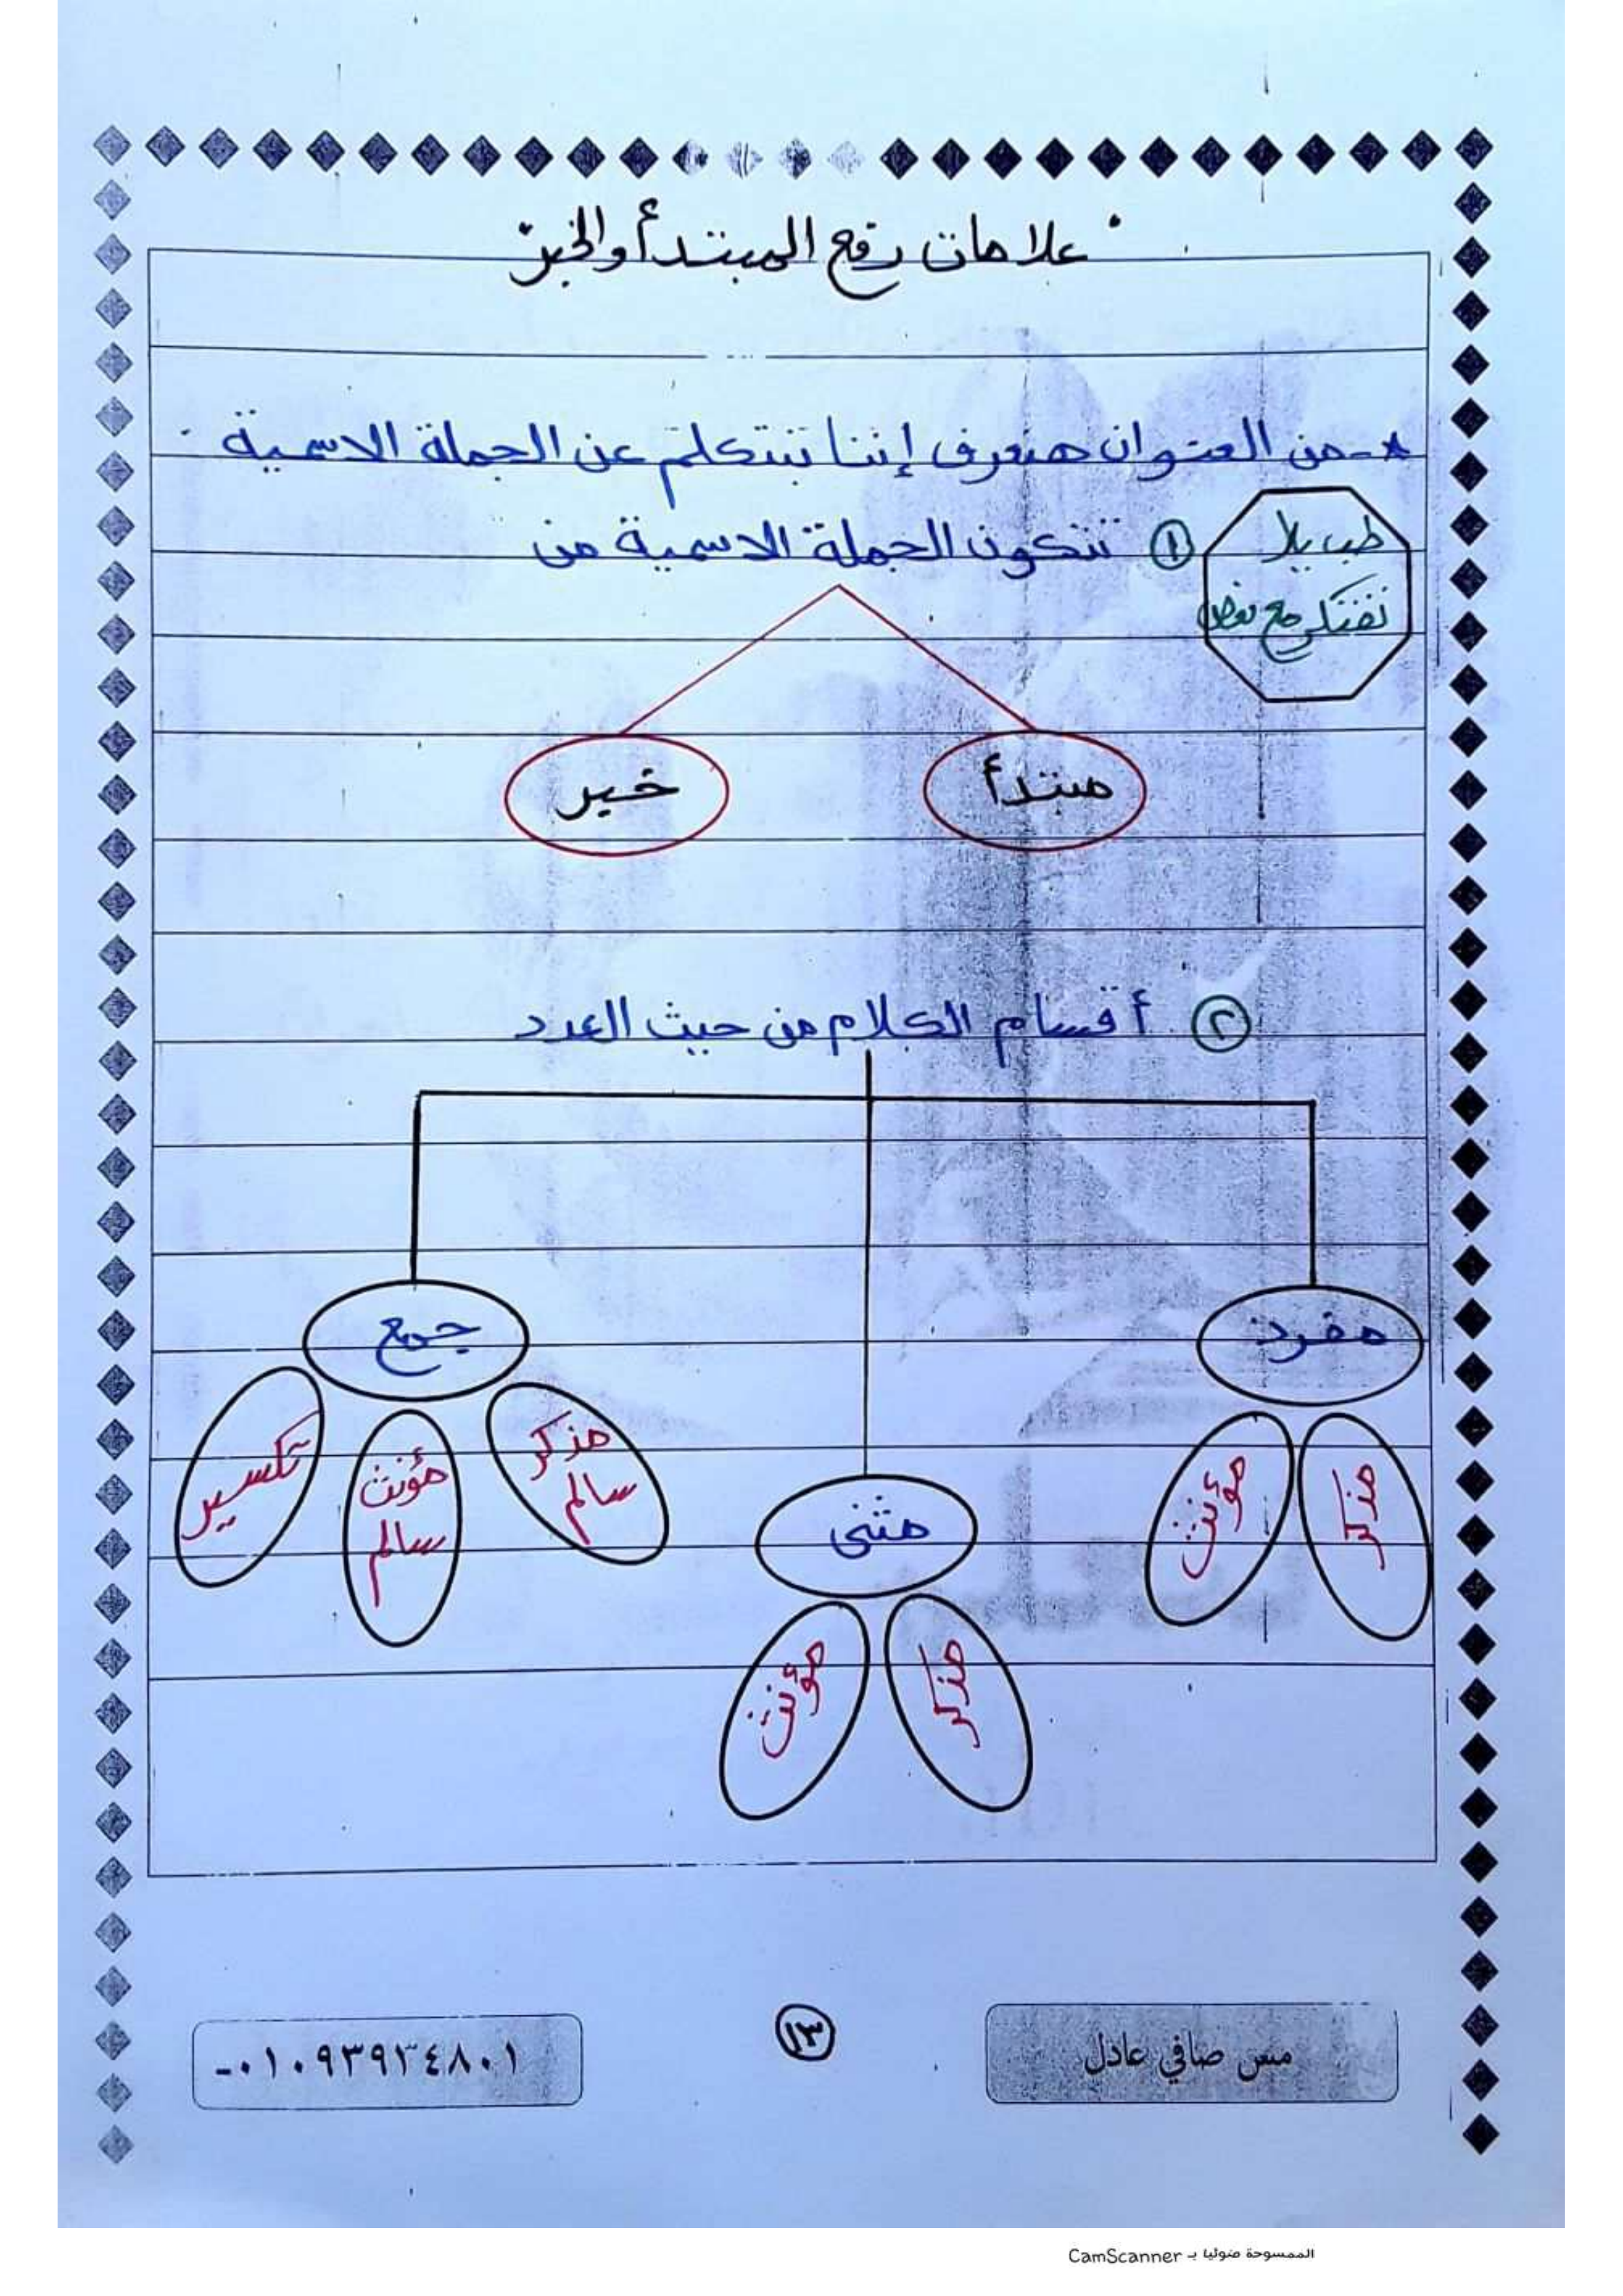 علامات رفع المبتدأ والخبر
*- من العنوان هنعرف إننا بنتكلم عن الجملة الاسمية .
طب يلا
نفتكر مع بعض
① تتكون الجملة الاسمية من
مبتدأ
خبر
② أقسام الكلام من حيث العدد
مفرد
مذكر
مؤنث
مثنى
مذكر
مؤنث
جمع
مذكر
سالم
مؤنث
سالم
تكسير
مس صافي عادل
١٣
٠١٠٩٣٩٢٤٨٠١-
الممسوحة ضوئيا بـ CamScanner